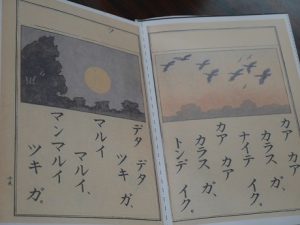 カア カア
カラス ガ、
ナイテ イク。
カア カア
カラス ガ、
トンデ イク。
デタ デタ
ツキ ガ、
マルイ
マルイ、
マンマルイ
ツキ ガ。